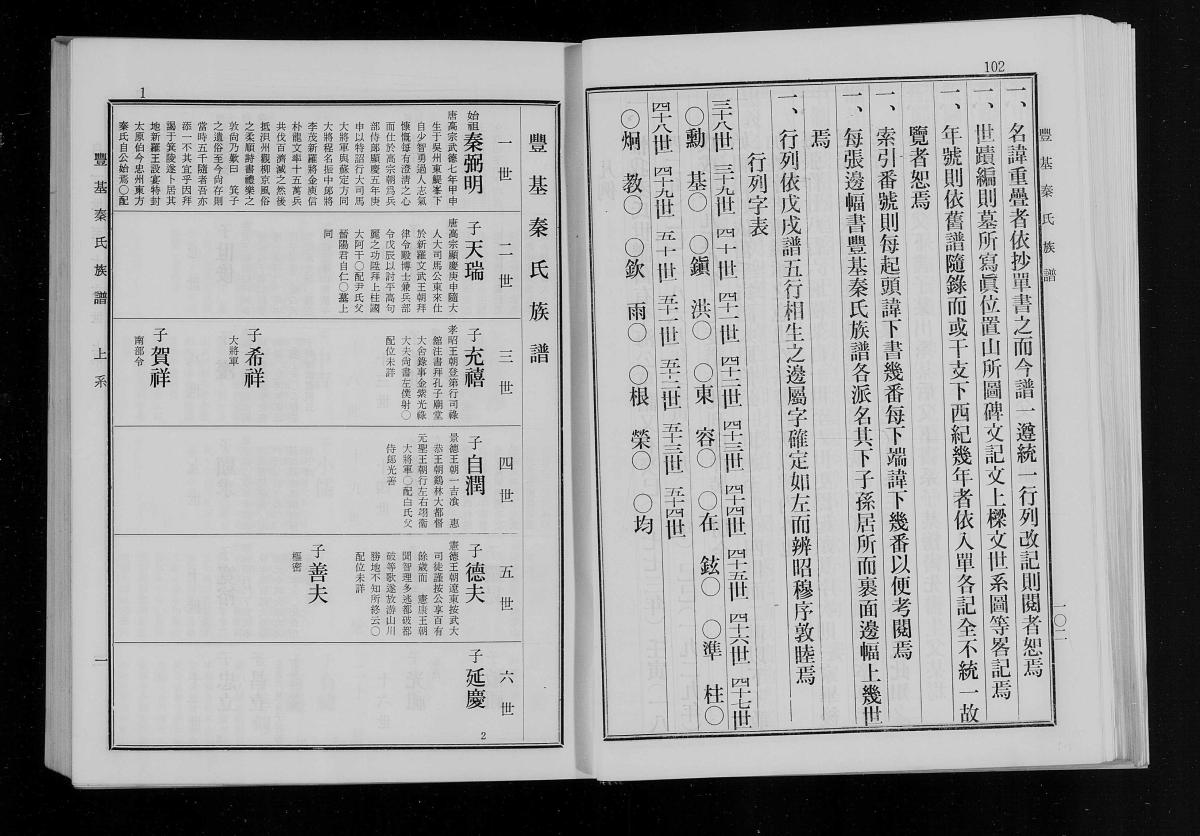 102
豐基秦氏族譜
一〇二
一、名諱重疊者依抄單書之而今譜一遵統一行列改記則閱者恕焉
一、世蹟編則墓所寫眞位置山所圖碑文記文上樑文世系圖等畧記焉
一、年號則依舊譜隨錄而或干支下西紀幾年者依入單各記全不統一故
覽者恕焉
一、索引番號則每起頭諱下書幾番每下端諱下幾番以便考閱焉
一、每張邊幅書豐基秦氏族譜各派名其下子孫居所而裏面邊幅上幾世
焉
一、行列依戊戌譜五行相生之邊屬字確定如左而辨昭穆序敦睦焉
行列字表
三十八世 三十九世 四十世 四十一世 四十二世 四十三世 四十四世 四十五世 四十六世 四十七世
○勳 基○ ○鎭 洪○ ○東 容○ ○在 鉉○ ○準 柱○
四十八世 四十九世 五十世 五十一世 五十二世 五十三世 五十四世
○炯 教○ ○欽 雨○ ○根 榮○ ○均
1
豐基秦氏族譜
一世
始祖秦弼明
唐高宗武德七年甲申
生于吳州東鯷峯下
自少智勇過人志氣
慷慨每有澄淸之心
而仕於高宗朝爲兵
部侍郎顯慶五年庚
申以特詔行大司馬
大將軍與蘇定方同
大將程名振中郎將
李茂新羅將金庾信
朴龍文率十五萬兵
共伐百濟滅之然後
抵浿州觀柳京風俗
之柔順詩書禮樂之
敦尚乃歎曰 箕子
之遺俗至今尙存則
當時五千隨者吾亦
添一不其宜乎因拜
謁于箕陵遂卜居其
地新羅王設宴特封
太原伯今忠州東方
秦氏自公始焉○配
二世
子天瑞
唐高宗顯慶庚申隨大
人大司馬公東來仕
於新羅文武王朝拜
律令殿博士兼兵部
令戊辰以討平高句
麗之功陞拜上柱國
大阿干○配尹氏父
晉陽君自仁○墓上
同
三世
子充禧
孝昭王朝登第行司祿
館注書拜孔子廟堂
大舍錄事金紫光祿
大夫尙書左僕射○
配位未詳
子希祥
大將軍
子賀祥
南部令
四世
子自潤
景德王朝一吉飡 惠
恭王朝鷄林大都督
元聖王朝行左右翊衞
大將軍○配白氏父
侍郎光善
五世
子德夫
憲德王朝遼東按武大
司徒謹按公享百有
餘歲而 憲康王朝
聞智理多逃都破都
破等歌遂放游山川
勝地不知所終云○
配位未詳
子善夫
樞密
六世
子延慶
2
豐基秦氏族譜 上系 一